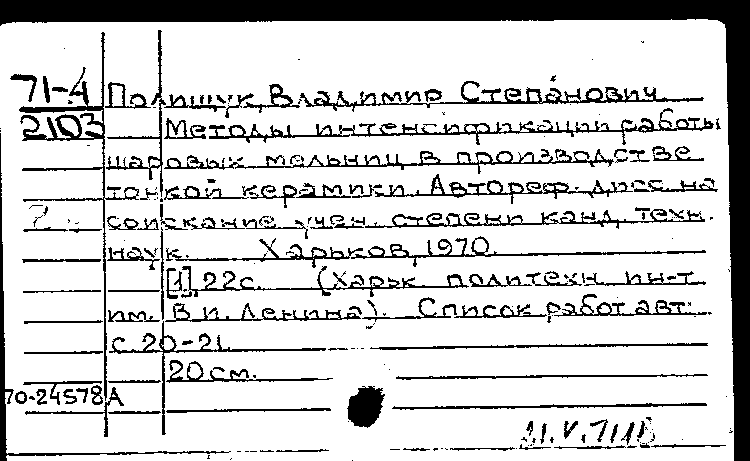 71-4 Полищук, Владимир Степанович
2103 Методы интенсификации работы
шаровых мельниц в производстве
тонкой керамики. Автореф. дисс. на
соискание учен. степени канд. техн.
наук. Харьков, 1970.
[1], 22с. (Харьк. политехн. ин-т
им. В.И. Ленина). Список работ авт:
с. 20-21.
20 см.
70-24578А